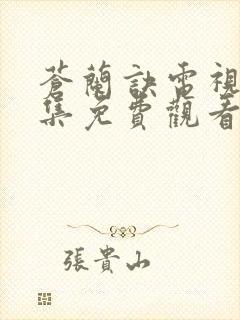 蒼蘭訣電視
集免費觀看
張貴山